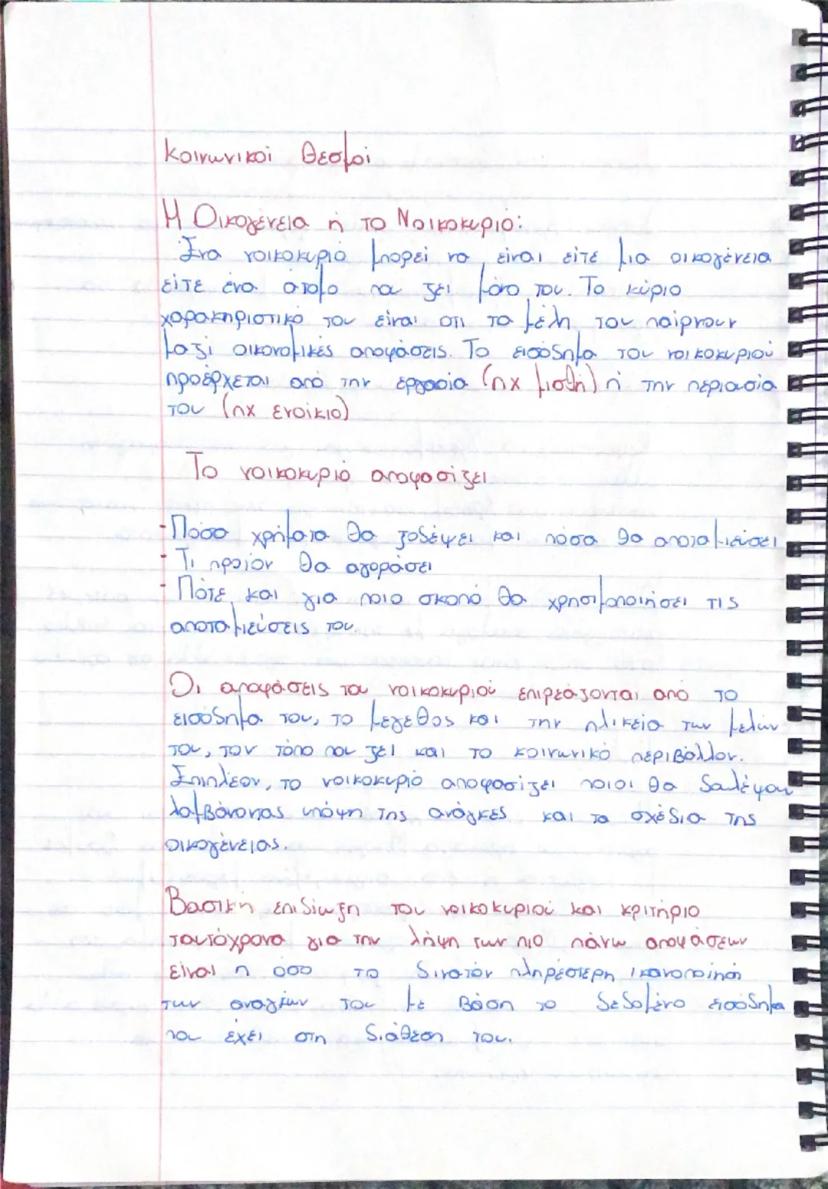 Κοινωνικοί Θεσμοί
Η Οικογένεια ή το Νοικοκυριό:
Ένα νοικοκυριό μπορεί να είναι είτε μια οικογένεια
είτε ένα άτομο που ζει μόνο του. Το κύριο
χαρακηριστικό του είναι οτι τα μέλη του παίρνουν
μαζί οικονομικές αποφάσεις. Το εισόδημα του νοικοκυριού
προέρχεται από την εργασία (πχ μισθή) ή την περιουσία
του (πχ ενοίκιο)
Το νοικοκυριό αποφασίζει
- Πόσα χρήματα θα ξοδέψει και πόσα θα αποταμιεύσει
- Τι προϊόν θα αγοράσει
- Πότε και για ποιο σκοπό θα χρησιμοποιήσει τις
αποταμιεύσεις του.
Οι αποφάσεις του νοικοκυριού επιρεάζονται από το
εισόδημα του, το μέγεθος και την ηλικεία των μελών
του, τον τόπο που ζει και το κοινωνικό περιβάλλον.
Επιπλέον, το νοικοκυριό αποφασίζει ποιοι θα δουλέψουν
λαμβάνοντας υπόψη της ανάγκες και τα σχέδια της
οικογένειας.
Βασική επιδίωξη του νοικοκυριού και κριτήριο
ταυτόχρονα για την λήψη των πιο πάνω αποφάσεων
είναι η όσο το δινατόν πληρέστερη ικανοποίηση
των αναγκών του με βάση το δεδομένο εισόδημα
που έχει στη διάθεση του.